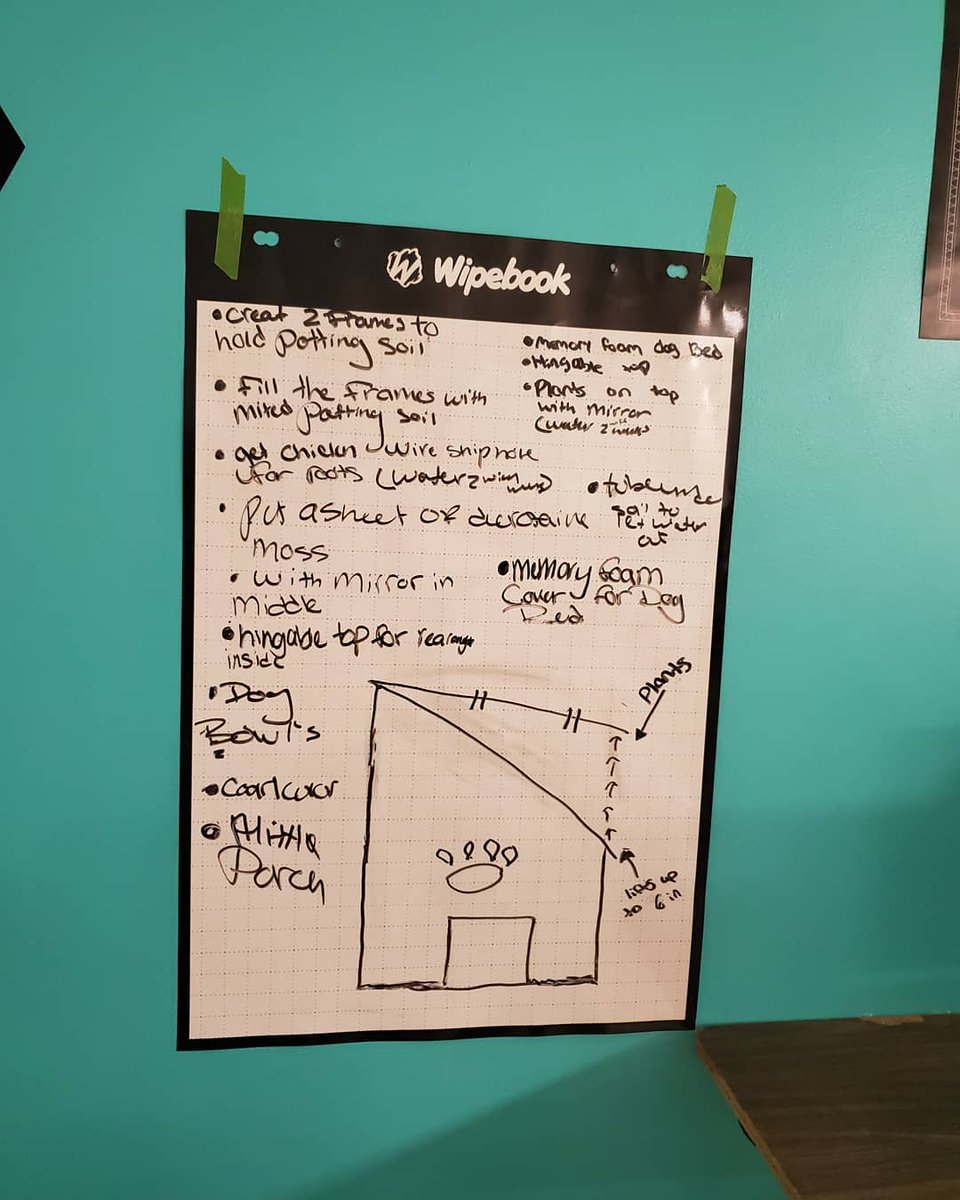 Wipebook
•creat 2 Frames to
hold Potting soil
• Fill the Frames with
mixed Potting soil
• get chickn wire
for roots (water 2
• Put a sheet of
moss
• with mirror in
middle
•hingable top for
inside
•Dog
Bowl's
•
• A little
Porch
•Memory foam dog Bed
•Hingable top
•Plants on top
with mirror
(water 2
•
soil to
let water
out
•Memory foam
Cover for Dog
Bed
Plants
lifts up
to 6 in